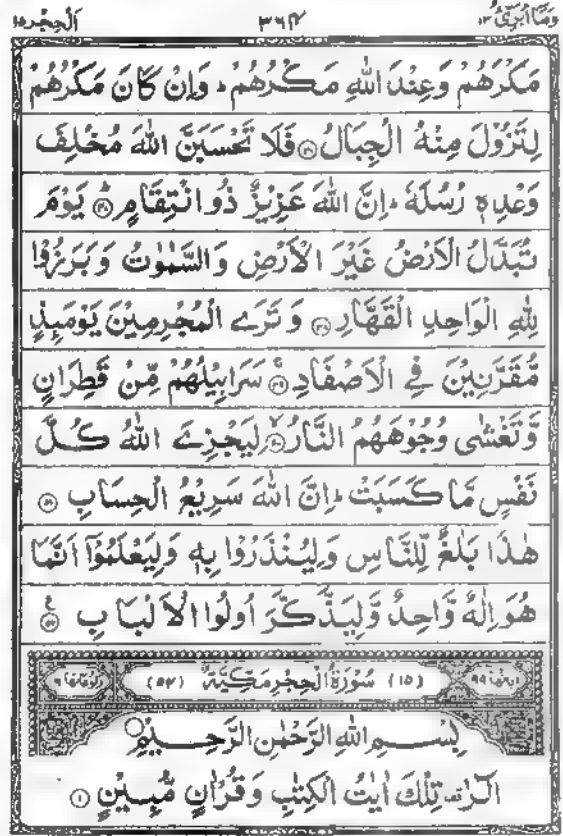 وَمَا أُبَرِّئُ ١٣ ٣٦٤ اَلْحِجْر ١٥
مَكْرَهُمْ وَعِنْدَ اللّٰهِ مَكْرُهُمْ ؕ وَاِنْ كَانَ مَكْرُهُمْ
لِتَزُوْلَ مِنْهُ الْجِبَالُ ۝ فَلَا تَحْسَبَنَّ اللّٰهَ مُخْلِفَ
وَعْدِهٖ رُسُلَهٗ ؕ اِنَّ اللّٰهَ عَزِيْزٌ ذُو انْتِقَامٍ ۝ يَوْمَ
تُبَدَّلُ الْاَرْضُ غَيْرَ الْاَرْضِ وَالسَّمٰوٰتُ وَبَرَزُوْا
لِلّٰهِ الْوَاحِدِ الْقَهَّارِ ۝ وَتَرَى الْمُجْرِمِيْنَ يَوْمَئِذٍ
مُّقَرَّنِيْنَ فِي الْاَصْفَادِ ۝ سَرَابِيْلُهُمْ مِّنْ قَطِرَانٍ
وَّتَغْشٰى وُجُوْهَهُمُ النَّارُ ۝ لِيَجْزِيَ اللّٰهُ كُلَّ
نَفْسٍ مَّا كَسَبَتْ ؕ اِنَّ اللّٰهَ سَرِيْعُ الْحِسَابِ ۝
هٰذَا بَلٰغٌ لِّلنَّاسِ وَلِيُنْذَرُوْا بِهٖ وَلِيَعْلَمُوْۤا اَنَّمَا
هُوَ اِلٰهٌ وَّاحِدٌ وَّلِيَذَّكَّرَ اُولُوا الْاَلْبَابِ ۝
اٰيَاتُهَا ٩٩ (١٥) سُوْرَةُ الْحِجْرِ مَكِّيَّةٌ (٥٤) رُكُوْعَاتُهَا ٦
بِسْمِ اللّٰهِ الرَّحْمٰنِ الرَّحِيْمِ
الٓرٰ ۟ تِلْكَ اٰيٰتُ الْكِتٰبِ وَقُرْاٰنٍ مُّبِيْنٍ ۝١